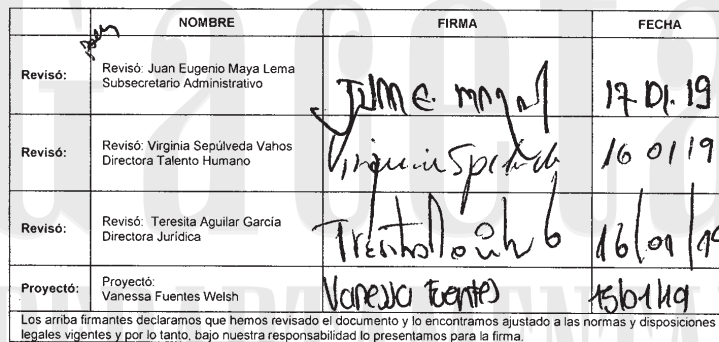 NOMBRE FIRMA FECHA
Revisó: Revisó: Juan Eugenio Maya Lema
Subsecretario Administrativo
17 01. 19
Revisó: Revisó: Virginia Sepúlveda Vahos
Directora Talento Humano
16 01 19
Revisó: Revisó: Teresita Aguilar García
Directora Jurídica
16/01/19
Proyectó: Proyectó:
Vanessa Fuentes Welsh
Vanessa Fuentes 15/01/19
Los arriba firmantes declaramos que hemos revisado el documento y lo encontramos ajustado a las normas y disposiciones
legales vigentes y por lo tanto, bajo nuestra responsabilidad lo presentamos para la firma.